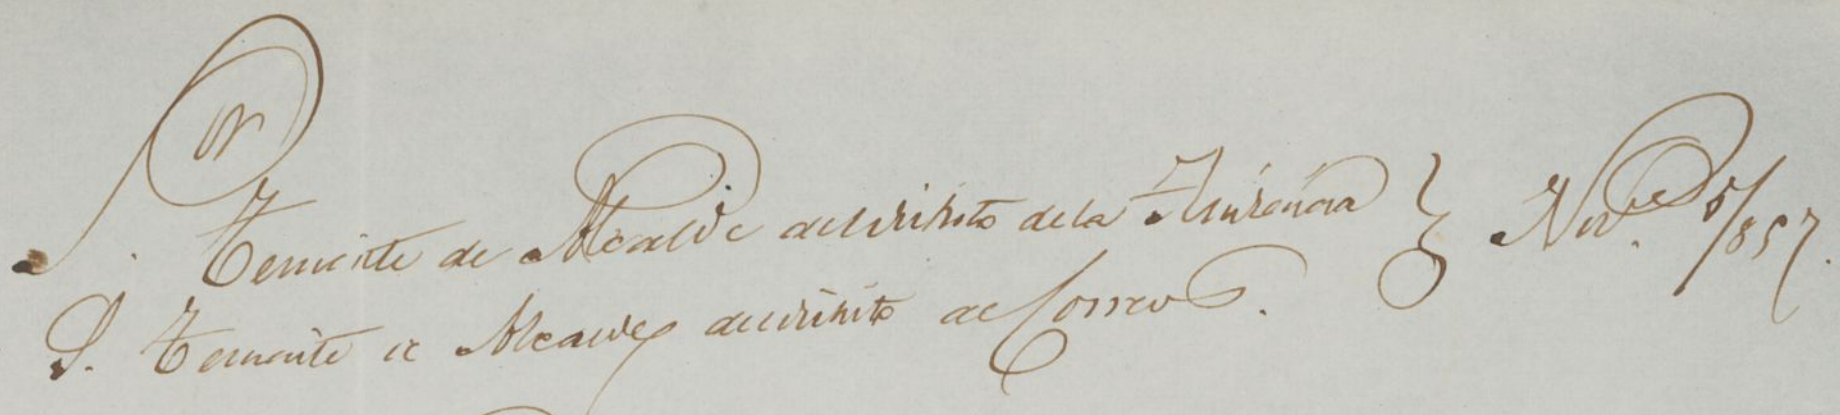 Sor. Teniente de Alcalde del distrito de la Audiencia } Nove. 5/857.
S. Teniente de Alcalde del distrito de Correos.